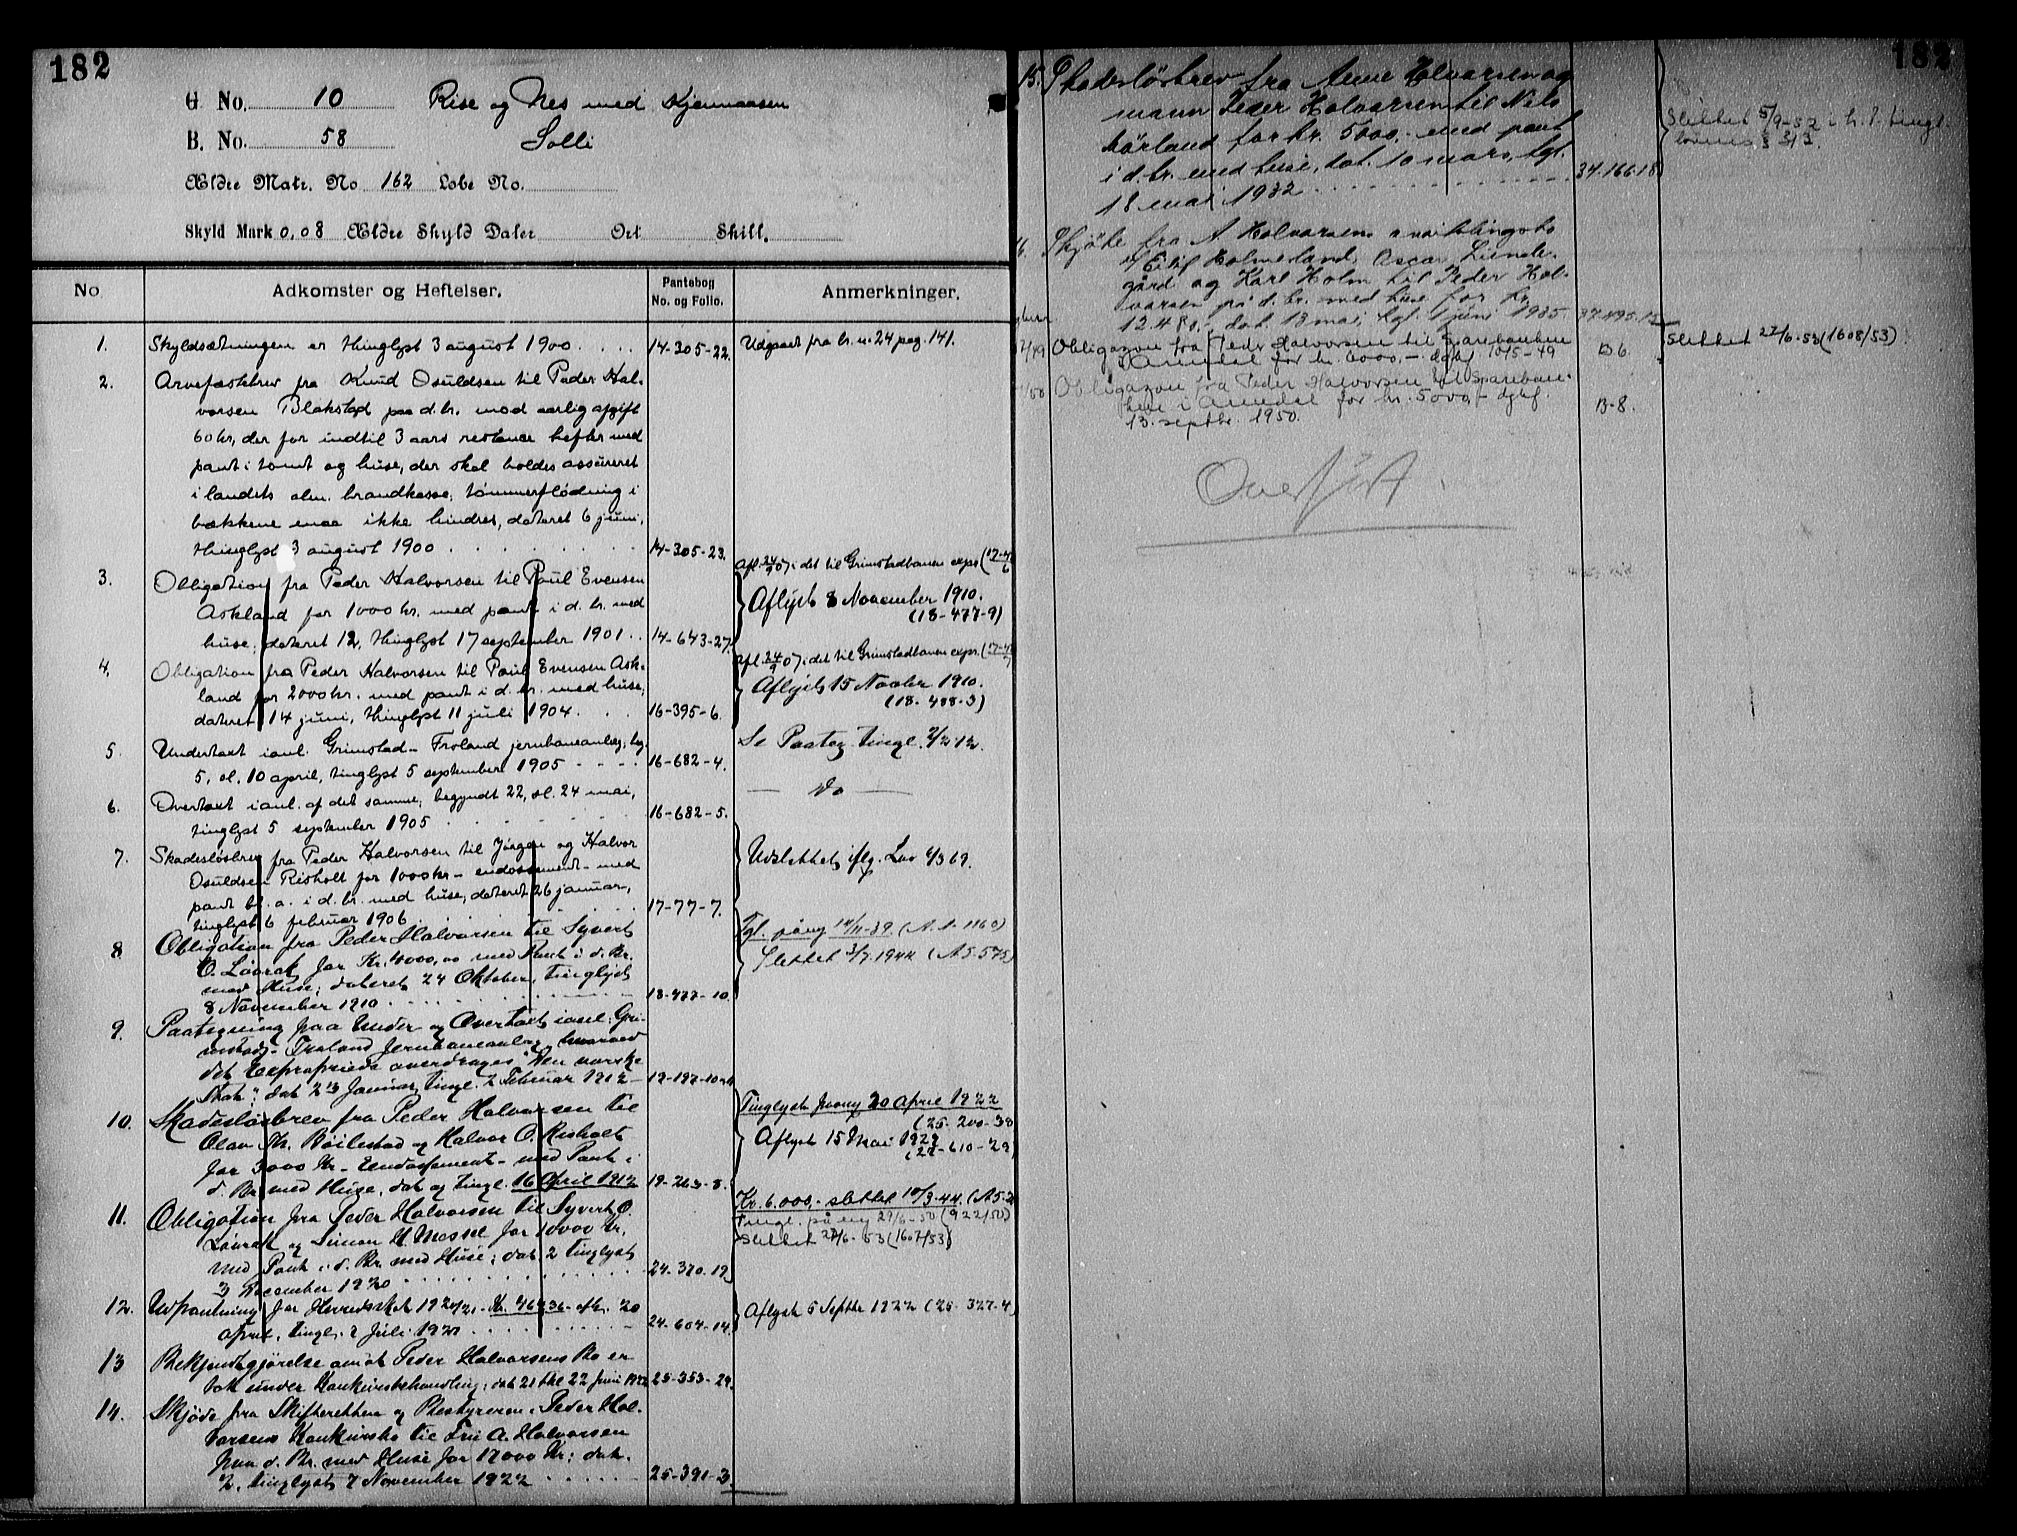 182
G. No. 10 Rise og Nes med Kjennaasen
B. No. 58 Solli
Ældre Matr. No 162 Løbe No.
Skyld Mark 0,08 Ældre Skyld Daler Ort Skill.
No Adkomster og Heftelser. Pantebog No. og Folio. Anmerkninger.
1. Skyldsætningen er thinglyst 3 august 1900 14-305-22. Udgaaet fra br. n. 24 pag. 141.
2. Arvefæstebrev fra Knud Osuldsen til Peder Hal-
vorsen Blakstad paa d. br. mod aarlig afgift
60 kr, der for indtil 3 aars restance hefter med
pant i tomt og huse, der skal holdes assureret
i landets alm. brandkasse; tømmerflødning i
bækkene maa ikke hindres, dateret 6 juni,
thinglyst 3 august 1900 14-305-23.
3. Obligation fra Peder Halvorsen til Paul Evensen
Askland for 1000 kr. med pant i d. br. med
huse, dateret 12, thinglyst 17 september 1901 14-643-27.
afl. 24/9 07 i det til Grimstadbanen expr. (17-4
6
Aflyst 8 November 1910.
(18-477-9)
4. Obligation fra Peder Halvorsen til Paul Evensen Ask-
land for 2000 kr. med pant i d. br. med huse,
dateret 14 juni, thinglyst 11 juli 1904. 16-395-6.
afl. 24/9 07 i det til Grimstadbanen expr. (17-4
7
Aflyst 15 Novbr 1910.
(18-488-3)
5. Undertaxt i anl. Grimstad-Froland jernbaneanlæg, beg.
5, sl. 10 april, tinglyst 5 september 1905 16-682-4.
Se Paateg. tingl. 2/2-12.
6. Overtaxt i anl. af det samme, begyndt 22, sl. 24 mai,
tinglyst 5 september 1905 16-682-5.
— Do —
7. Skadesløsbrev fra Peder Halvorsen til Jørgen og Halvor
Osuldsen Risholt for 1000 kr - endossement - med
pant bl. a. i d. br. med huse, dateret 26 januar,
tinglyst 6 februar 1906 17-77-7.
Udslettet iflg. Lov
8. Obligation fra Peder Halvorsen til Syvert
O. Løvrak for Kr. 4000,00 med Pant i d. Br.
med Huse; dateret 24 Oktober, tinglyst
8 November 1910 18-477-10.
Tgl. påny 14/11-39. (A. 1-1160)
Slettet 3/7.1944 (A5-575)
9. Paategning paa Under og Overtaxt i anl. Gri-
mstad-Froland Jernbaneanlæg hvorved
det Exproprierede overdrages "Den norske
Stat"; dat 23 Januar, tingl. 2 Februar 1912 19-197-10
10. Skadesløsbrev fra Peder Halvorsen til
Olav Th. Bøilestad og Halvor O. Risholt
for 3000 Kr - Endossement - med Pant i
d. Br. med Huse, dat og tingl. 16 April 1912 19-263-8.
Tinglyst paany 20 April 1922
(25-200-38
Aflyst 15 Mai 1929
(27-610-29)
11. Obligation fra Peder Halvorsen til Syvert O.
Løvrak og Simon H. Messel for 10000 Kr.
med Pant i d. Br. med Huse; dat. 2 tinglyst
3 December 1920 24-370-19
Kr. 6.000,- slettet 10/3-44. (A5-2
Tingl. på ny 29/6-50 (922/50)
Slettet 27/6-53 (1607/53)
12. Udpantning for Herredsskat 1920/21 - Kr. 467,36 - afh. 20
April, tingl. 2 Juli 1921 24-604-14.
Aflyst 5 Septbr 1922 (25-327-4)
13 Bekjendtgjørelse om at Peder Halvorsens Bo er
tat under Konkursbehandling; dat 21 tkl 22 Juni 1922 25-353-24.
14. Skjøde fra Skifteretten og Bestyreren i Peder Hal-
vorsens Konkursbo til Fru A. Halvorsen
paa d. Br. med Huse for 12000 Kr; dat.
2, tinglyst 7 November 1922 25-391-3.
182
15. Skadesløsbrev fra Anne Halvorsen og
mann Peder Halvorsen til Nils
Hørland for kr. 5000,- med pant
i d. br. med huse, dat. 10 mars, tgl.
18 mai 1932 34-166-18
Slettet 5/9-52 i h. t. tingl.
lovens § 31
16. Skjøte fra A Halvorsens avviklingsbo
v/ Eilif Holmesland, Oscar Lunde-
gård og Karl Holm til Peder Hal-
vorsen på d. br. med huse for kr
12.480,- dat. 13 mai, tgl. 1 juni 1935 37-495-12
Obligasjon fra Peder Halvorsen til Sparebanken
i Arendal for kr. 6000,- dgbf 10/5-49 B 6.
Slettet 27/6-53 (1608/53)
Obligasjon fra Peder Halvorsen til Spareban-
ken i Arendal for kr. 5000,- dgbf.
13. septbr. 1950. B-8.
Overført